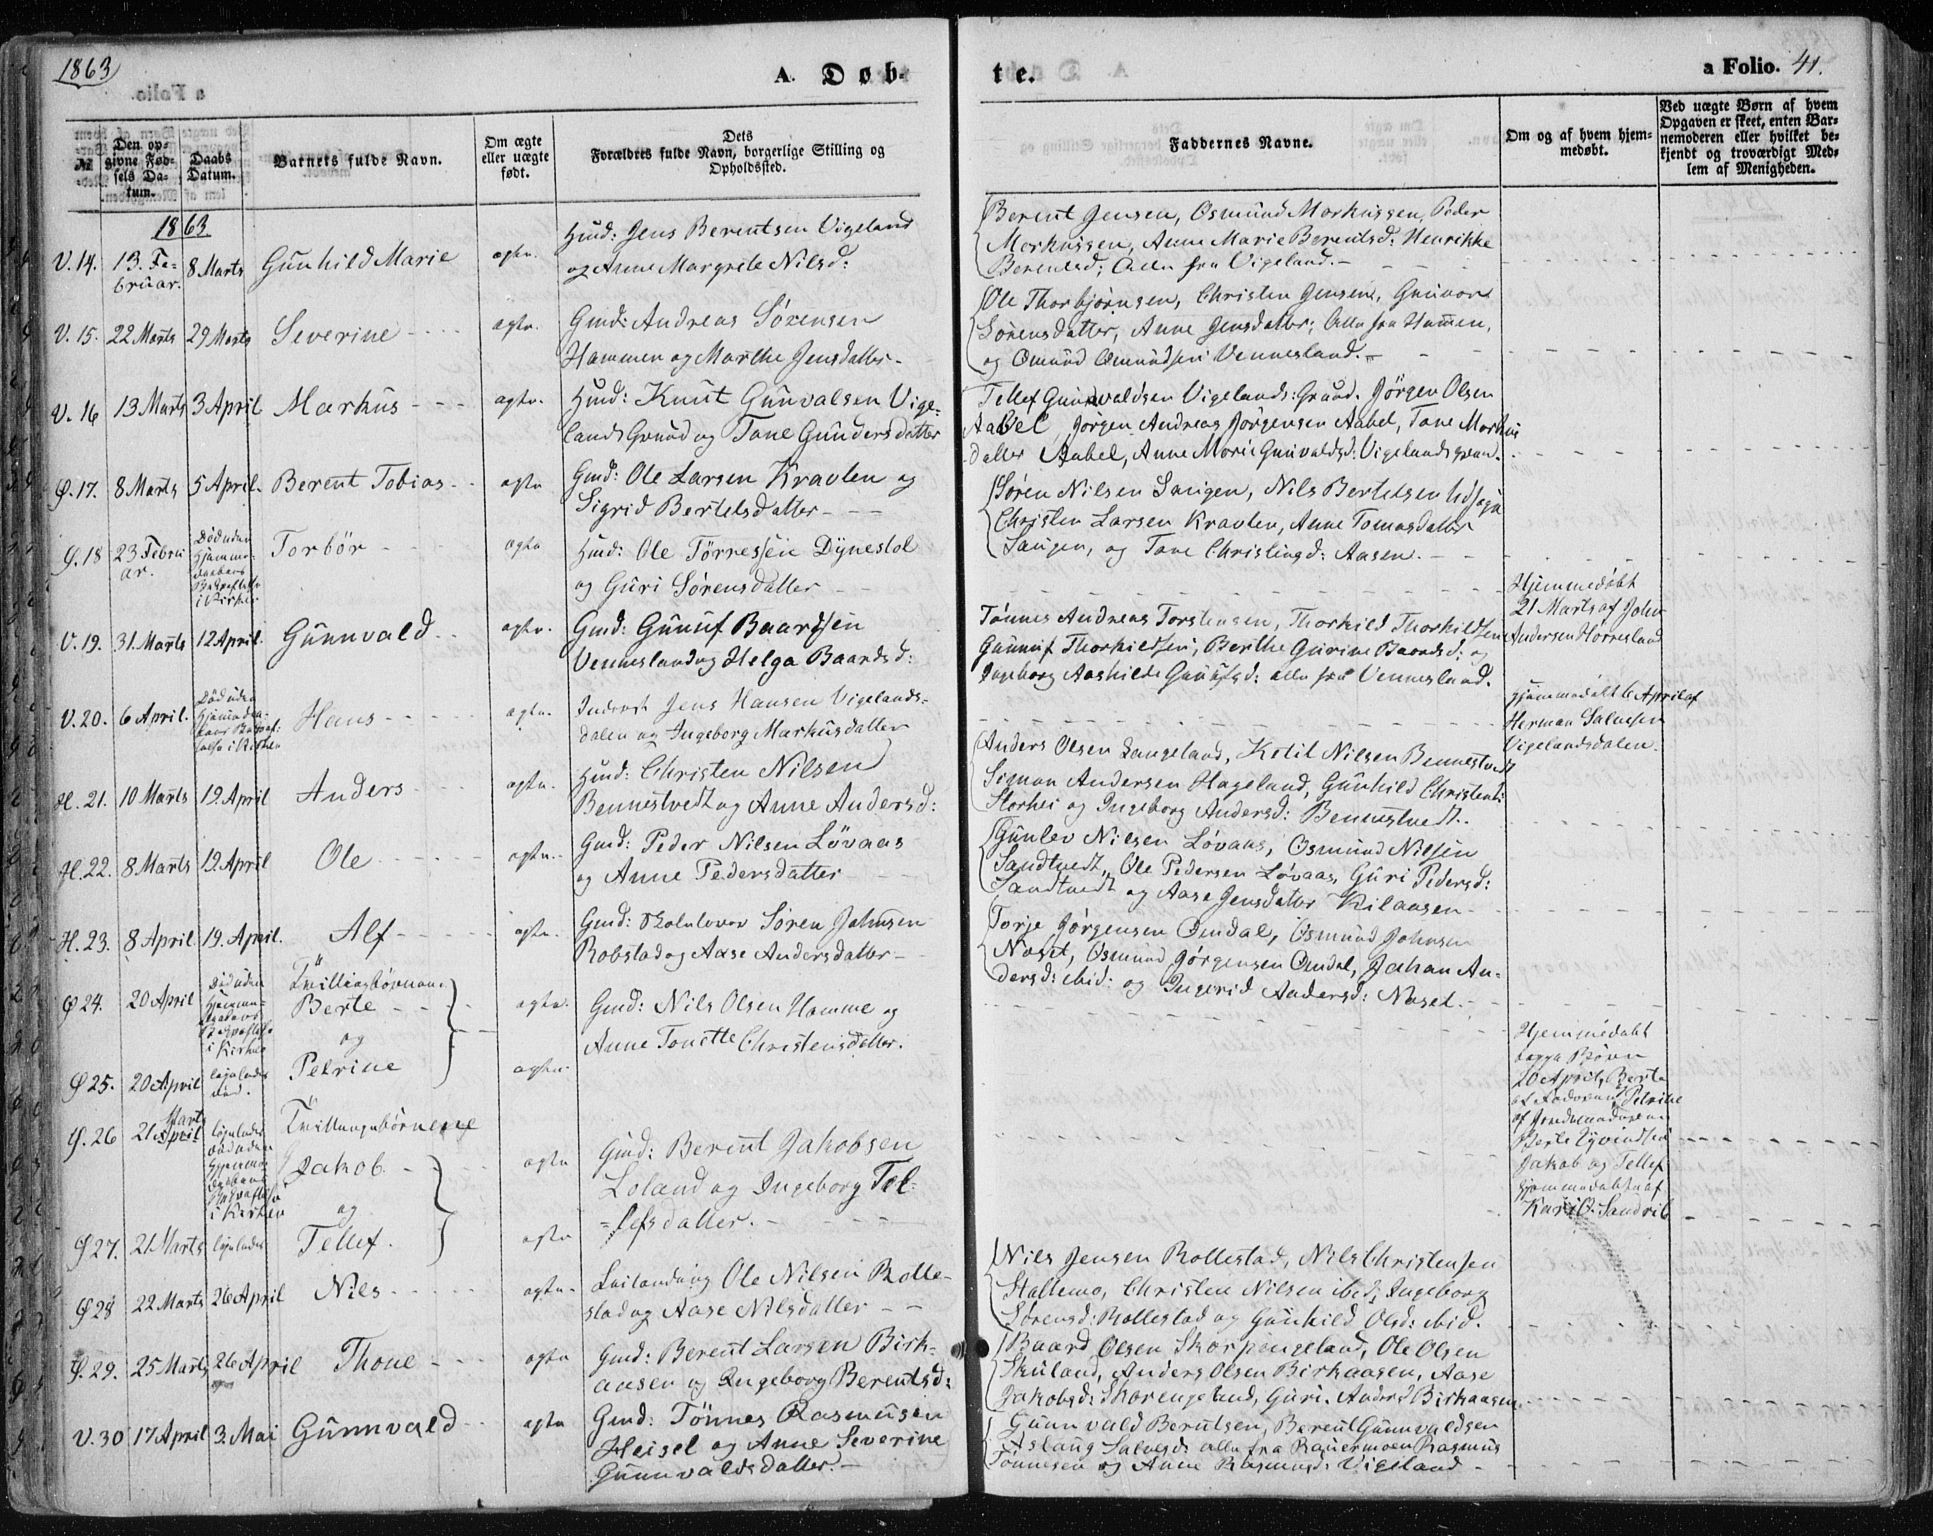 1863
A. Døb-
te.
a Folio. 41.
№
Den op-
givne Fød-
sels Da-
tum.
Daabs
Datum.
Barnets fulde Navn.
Om ægte
eller uægte
født.
Dets
Forældres fulde Navn, borgerlige Stilling og
Opholdssted.
Faddernes Navne.
Om og af hvem hjem-
medøbt.
Ved uægte Børn af hvem
Opgaven er skeet, enten Bar-
nemoderen eller hvilket be-
kjendt og troværdigt Med-
lem af Menigheden.
1863
V. 14. 13. Fe-
bruar. 8 Marts Gunhild Marie ægte.
Husmd: Jens Berentsen Vigeland
og Anne Margrete Nilsd:
Berent Jensen, Osmund Markussen, Peder
Markussen, Anne Marie Berentsd: Henrikke
Berentsd; Alle fra Vigeland.
V. 15. 22 Marts 29 Marts Severine ægte.
Gmd: Andreas Sørensen
Hammen og Marthe Jensdatter
Ole Thorbjørnsen, Christen Jensen, Gunvor
Sørensdatter, Anne Jensdatter; Alle fra Hammen,
og Omund Omundsen Vennesland.
V. 16 13 Marts 3 April Markus ægte.
Husmd: Knut Gunvalsen Vige-
lands Grund og Tone Gundersdatter
Tellef Gunvaldsen Vigelands: Grund. Jørgen Olsen
Aabel, Jørgen Andreas Jørgensen Aabel, Tone Markus
datter Aabel, Anne Marie Gunvaldsd: Vigelandsgrund.
Ø. 17. 8 Marts 5 April. Berent Tobias ægte
Gmd: Ole Larsen Kravlen og
Sigrid Bertelsdatter
Søren Nilsen Langen, Nils Bertelsen
Christen Larsen Kravlen, Anne Tomasdatter
Langen, og Tone Christensd: Aasen.
Ø. 18 23 Febru
ar.
Død uden
Hjemme-
daabens
Bekræftelse
i Kirken
Torbør ægte
Husmd: Ole Tørressen Dynestøl
og Guri Sørensdatter
Hjemmedøbt
21 Marts af John
Andersen Horresland
V. 19. 31. Marts 12 April. Gunnvald ægte.
Gmd: Gunuf Baardsen
Vennesland og Helga Baardsd:
Tønnes Andreas Torstensen, Thorkild Thorkildsen
Gunnuf Thorkildsen, Berthe Gurine Baardsd: og
Ingeborg Aashilde Gunufsd: alle fra Vennesland.
V. 20. 6 April.
Død uden
Hjemmedaa-
bens Bekræf-
telse i Kirken
Hans ægte.
Inderst Jens Hansen Vigelands-
dalen og Ingeborg Markusdatter
Hjemmedøbt 6 April af
Herman Salvesen
Vigelandsdalen.
H. 21. 10 Marts 19. April Anders ægte.
Husmd: Christen Nilsen
Bennestvedt og Anne Andersd:
Anders Olsen Langeland, Ketil Nilsen Bennestvedt
Simon Andersen Hageland, Gunhild Christensd:
Storhei og Ingeborg Andersd: Bennestvedt.
H. 22. 8 Marts 19. April Ole ægte.
Gmd: Peder Nilsen Løvaas
og Anne Pedersdatter
Gunlev Nilsen Løvaas, Osmund Nilsen
Sandtvedt, Ole Pedersen Løvaas, Guri Pedersd:
Sandtvedt og Aase Jensdatter Kilaasen
H. 23. 8 April 19. April. Alf ægte.
Gmd: Skolelærer Søren Johnsen
Robstad og Aase Andersdatter
Torje Jørgensen Omdal, Osmund Johnsen
Naset, Osmund Jørgensen Omdal, Johan An-
dersd: ibid: og Ingerid Andersd: Naset.
Ø 24. 20 April
Død uden
Hjemme-
daabens
Bekræftelse
i Kirken
Tvillingbørnene
Berte ægte.
og
Gmd: Nils Olsen Homme og
Anne Tonette Christensdatter.
Ø 25. 20 April ligeledes
død.
Petrine ægte.
Hjemmedøbt
begge Børn
20 April, Berte
af Faderen, Petrine
af Jordemoderen
Berte Eyvindsd:
Ø. 26 21 Marts
Tvillingebørnene
ligeledes
død uden
Hjemme-
daabens
Bekræftelse
i Kirken
Jakob ægte
og
Gmd: Berent Jakobsen
Loland og Ingeborg Tel-
lefsdatter.
Jakob og Tellef
hjemmedøbte af
Kari O. Sandrib
Ø 27. 21 Marts ligeledes Tellef. ægte
Ø 28 22 Marts 26 April Nils ægte.
Leilænding Ole Nilsen Rolle-
stad og Aase Nilsdatter
Nils Jensen Rollestad, Nils Christensen
Stallemo, Christen Nilsen ibid; Ingeborg
Sørensd: Rollestad og Gunhild Olsd: ibid.
Ø. 29. 25 Marts 26 April Thone ægte
Gmd: Berent Larsen Birk-
aasen og Ingeborg Berentsd:
Baard Olsen Skarpengeland, Ole Olsen
Skuland, Anders Olsen Birkaasen, Aase
Jakobsd: Skorengeland, Guri Andersd Birkaasen
V. 30 17 April 3. Mai Gunnvald ægte
Gmd: Tønnes Rasmusen
Heisel og Anne Severine
Gunnvaldsdatter.
Gunnvald Berntsen, Berent Gunnvaldsen
Aslaug Salvesd: alle fra Rauermoen Rasmus
Tønnesen og Anne Rasmusd: Vigeland